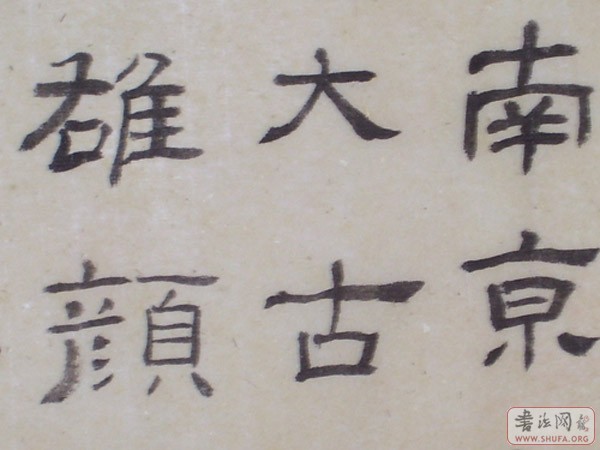 南京
大古
雄顔
書法网
WWW.SHUFA.ORG